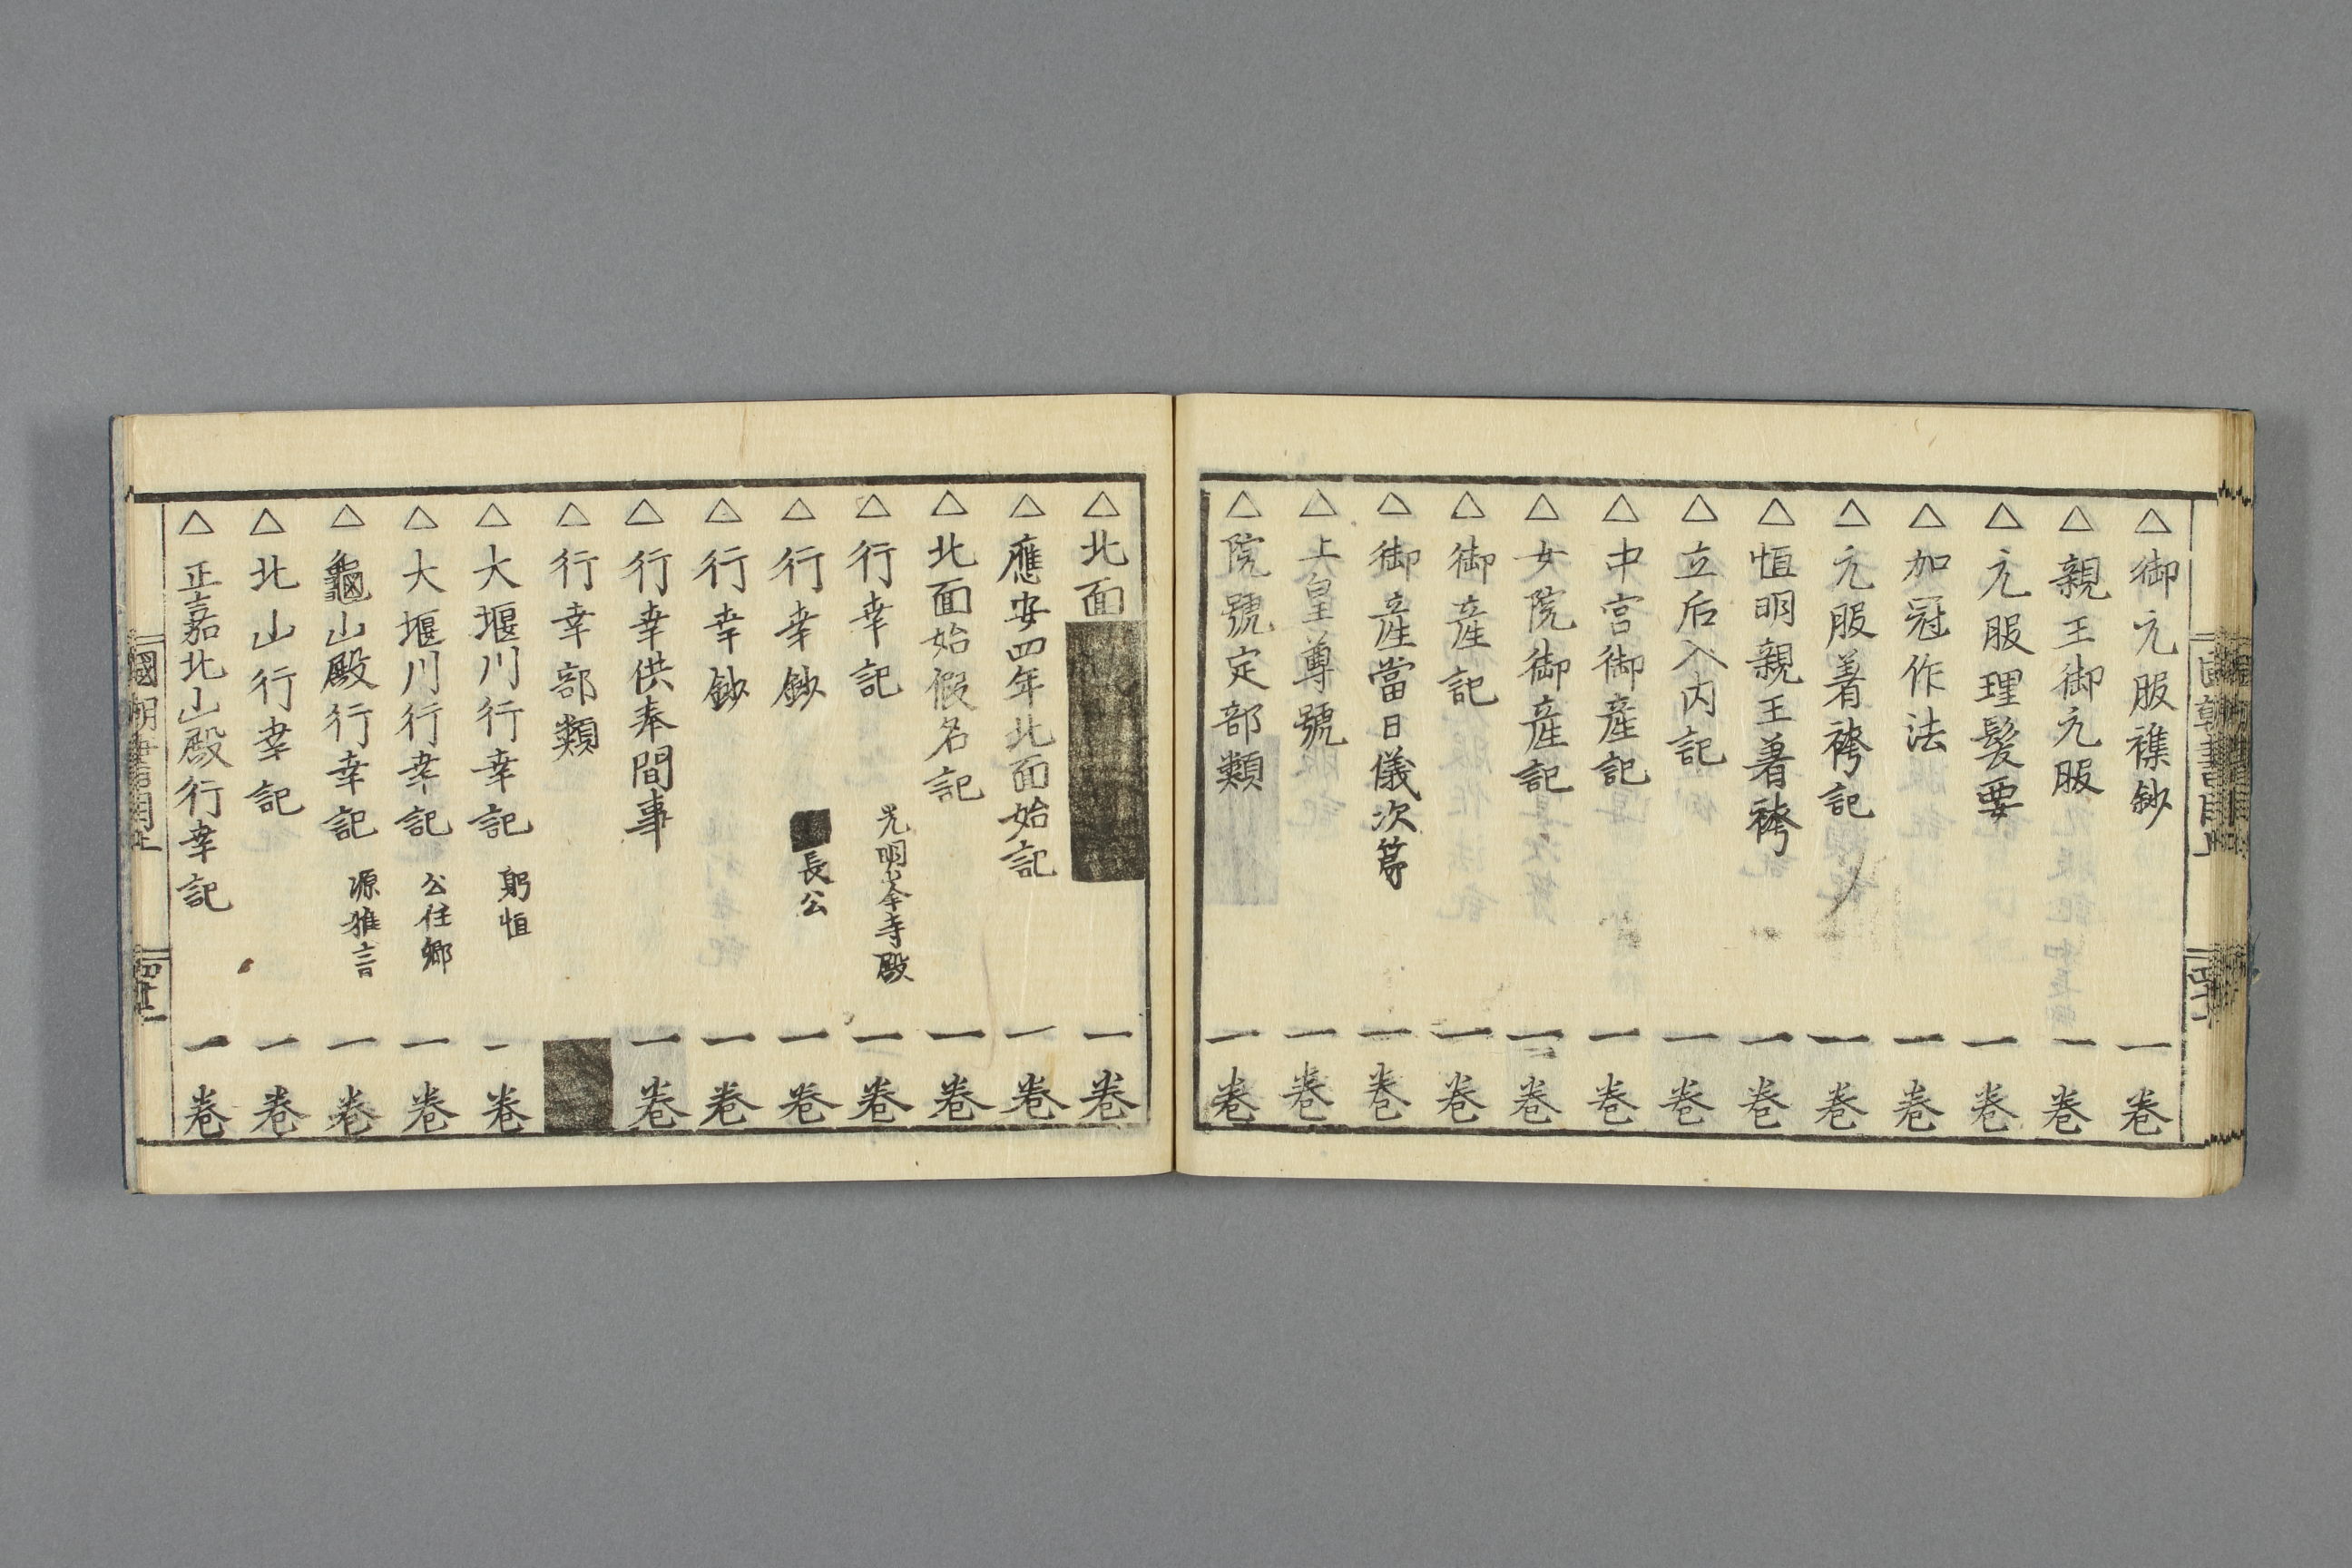 △御元服襍鈔 一巻
△親王御元服 一巻
△元服理髪要 一巻
△加冠作法 一巻
△元服着袴記 一巻
△恒明親王着袴 一巻
△立后入内記 一巻
△中宮御産記 一巻
△女院御産記 一巻
△御産記 一巻
△御産當日儀次第 一巻
△上皇尊號 一巻
△院號定部類 一巻
△北面 一巻
△應安四年北面始記 一巻
△北面始假名記 一巻
△行幸記 光明峯寺殿 一巻
△行幸鈔 長公 一巻
△行幸鈔 一巻
△行幸供奉間事 一巻
△行幸部類
△大堰川行幸記 躬恒 一巻
△大堰川行幸記 公任卿 一巻
△龜山殿行幸記 源雅言 一巻
△北山行幸記 一巻
△正嘉北山殿行幸記 一巻